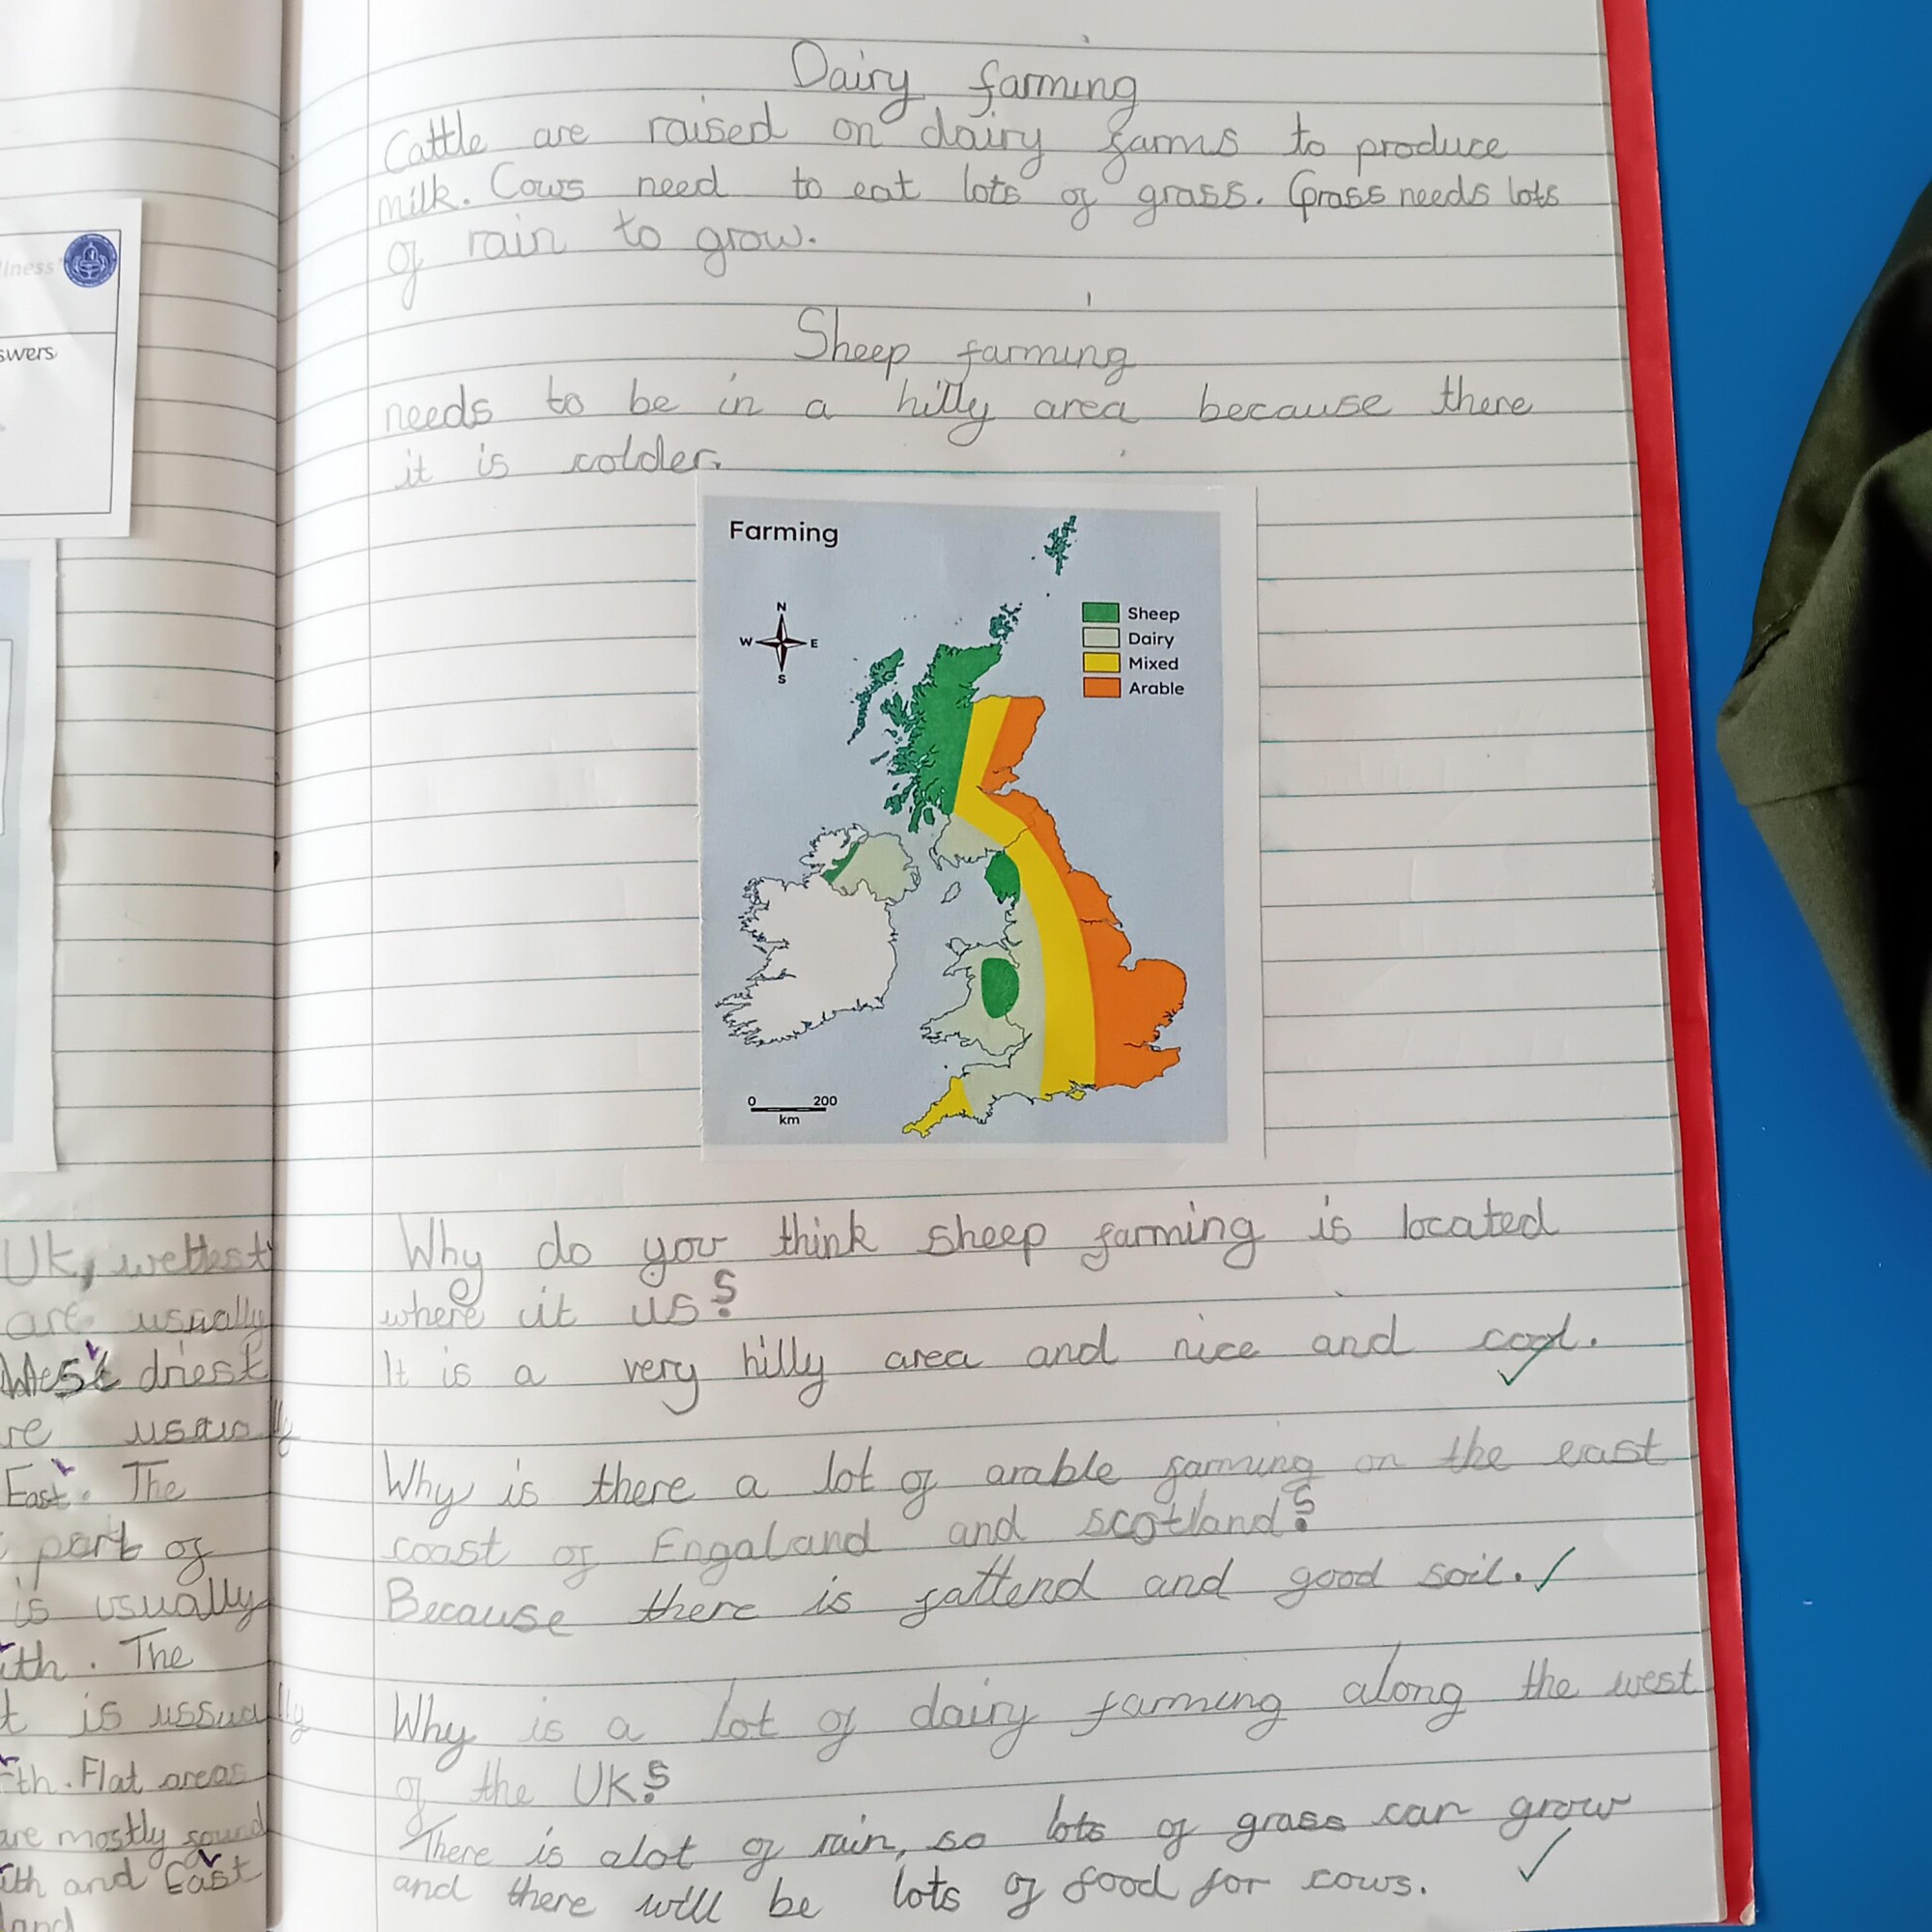 Dairy farming
Cattle are raised on dairy farms to produce
milk. Cows need to eat lots of grass. Grass needs lots
of rain to grow.
Sheep farming
needs to be in a hilly area because there
it is colder.
Farming
N
W E
S
Sheep
Dairy
Mixed
Arable
0 200
km
Why do you think sheep farming is located
where it us?
It is a very hilly area and nice and cool.
Why is there a lot of arable farming on the east
coast of Engaland and scotland?
Because there is fattend and good soil.
Why is a lot of dairy farming along the west
of the UK?
There is alot of rain, so lots of grass can grow
and there will be lots of food for cows.
lness
swers
UK, wettest
are usually
West driest
re usually
East. The
part of
is usually
th. The
t is ussually
th. Flat areas
are mostly found
th and East
land